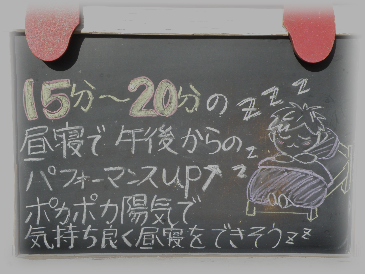 15分～20分の zzz
昼寝で 午後からの z
パフォーマンスup↗ z
ポカポカ陽気で
気持ち良く昼寝をできそうzz